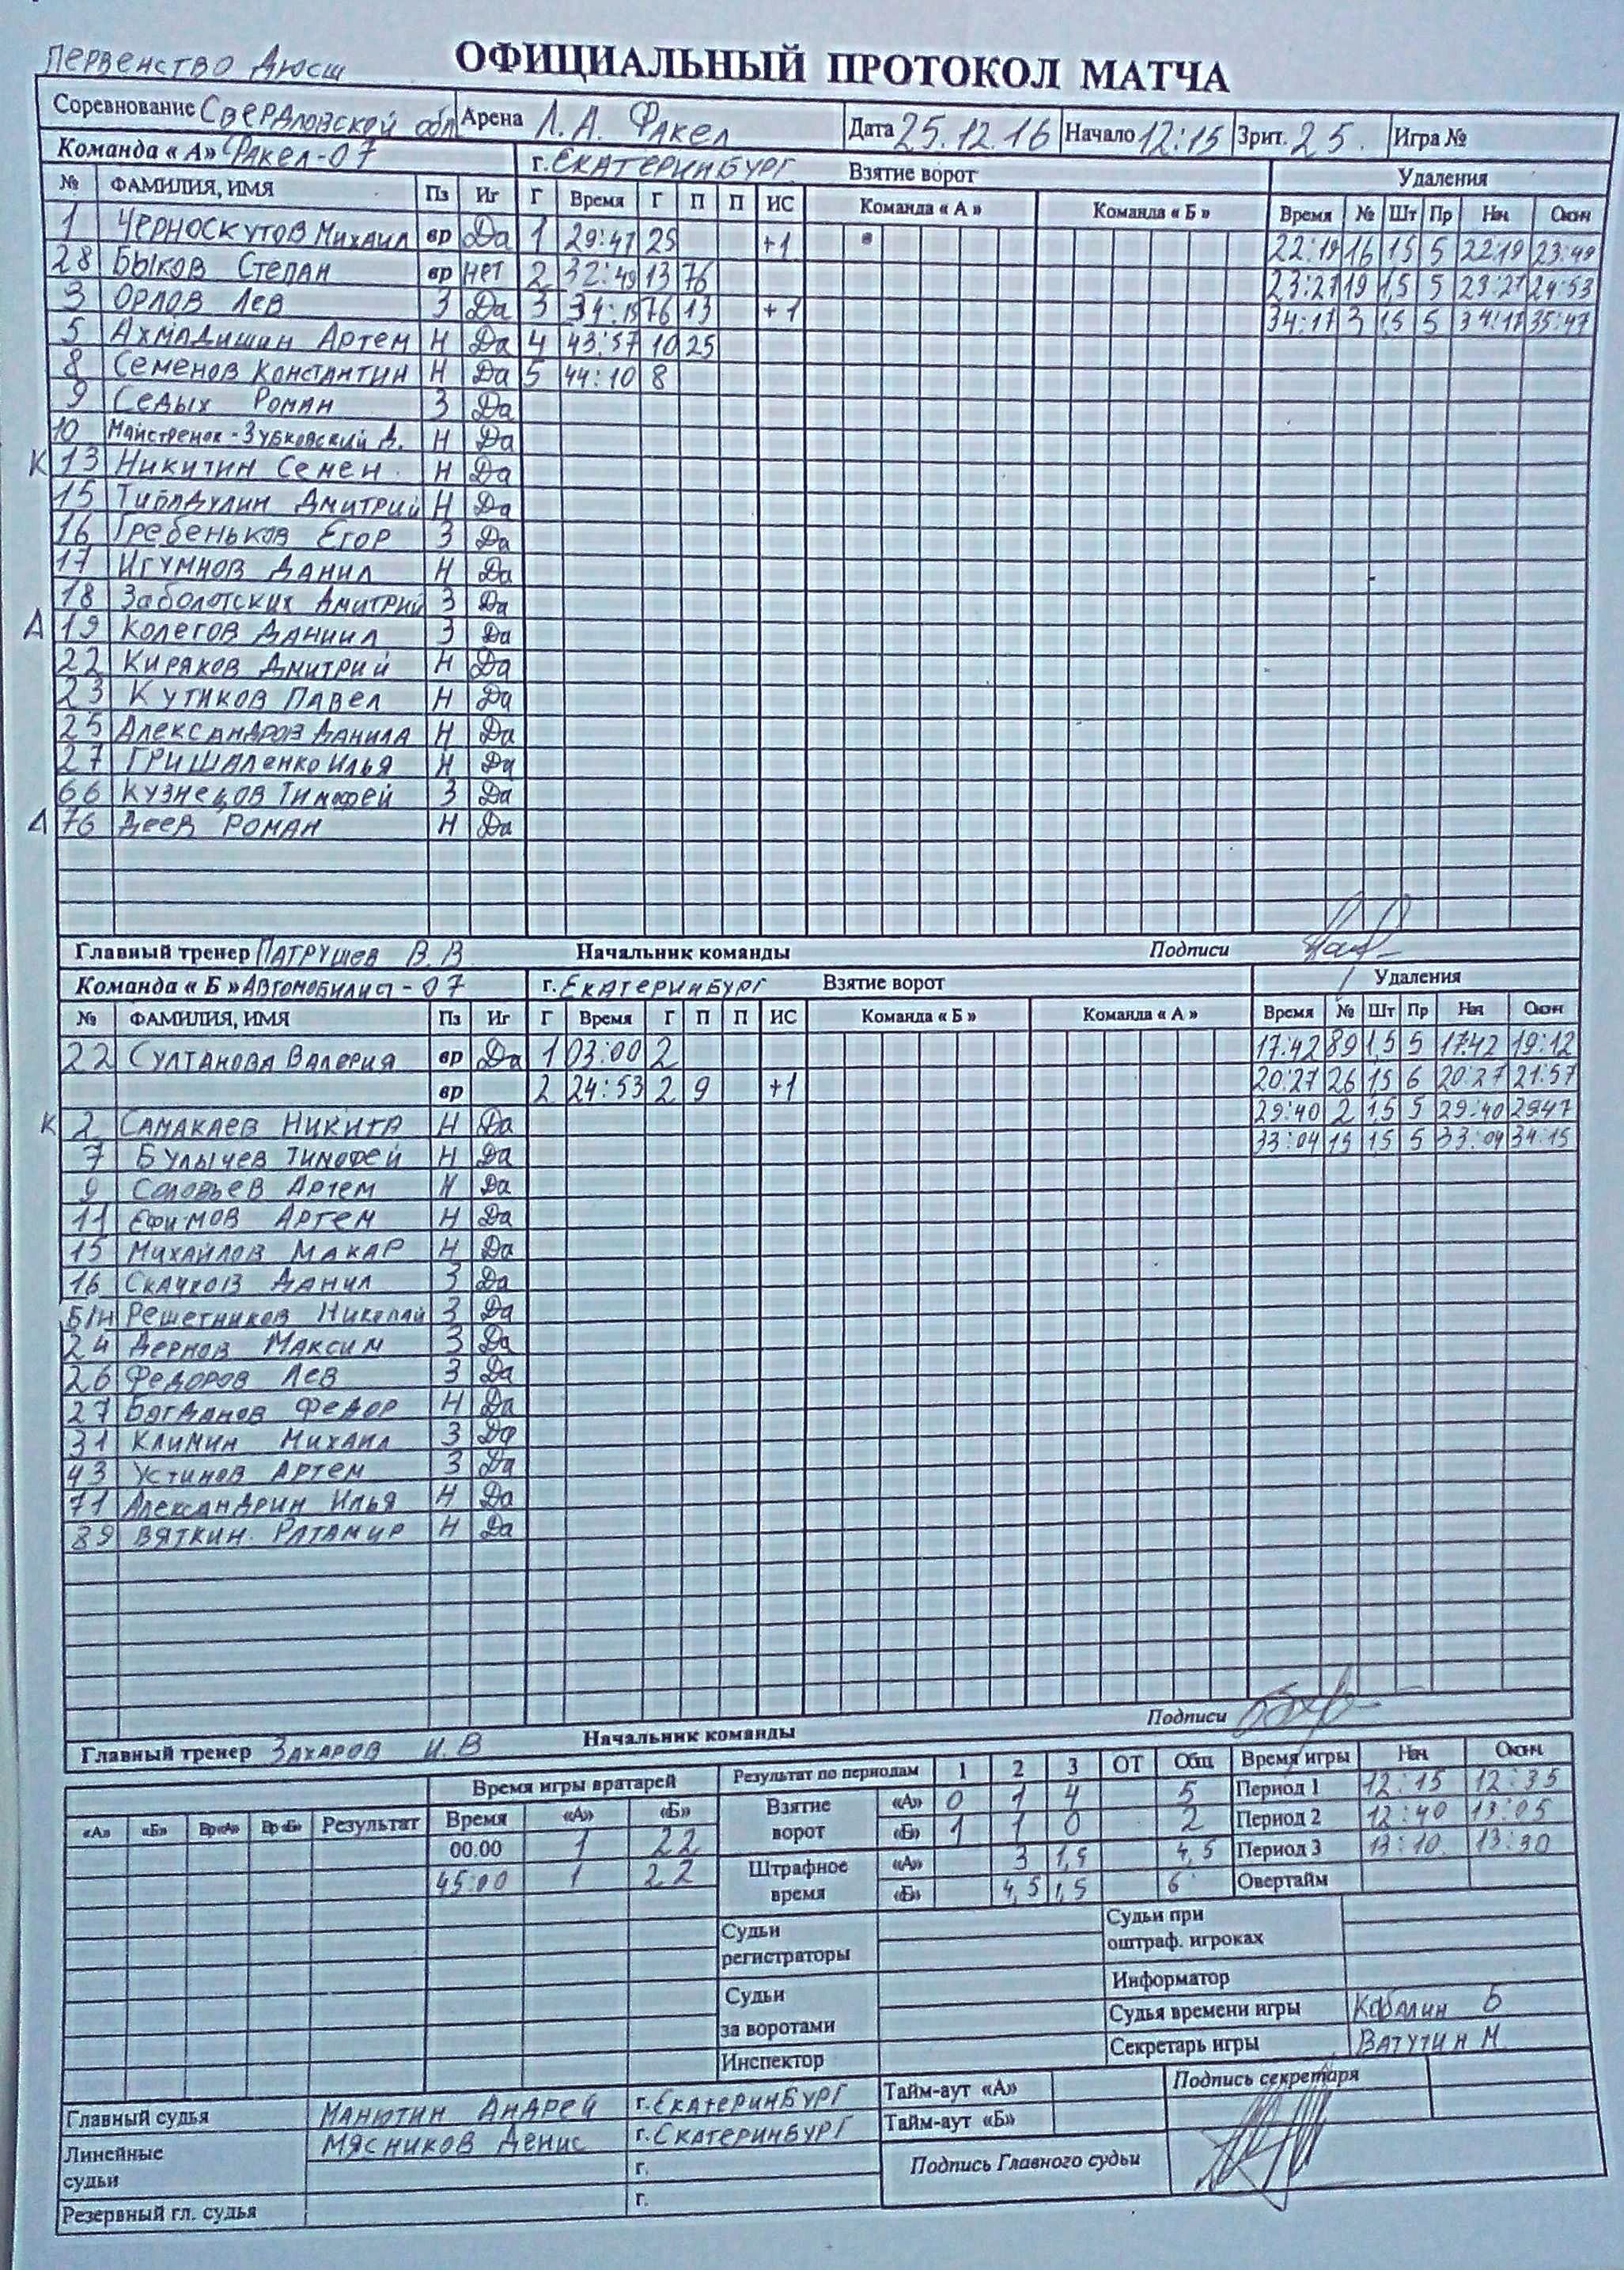 Первенство ДЮСШ
ОФИЦИАЛЬНЫЙ ПРОТОКОЛ МАТЧА
Соревнование Свердловской обл Арена Л.А. Факел Дата 25.12.16 Начало 12:15 Зрит. 25. Игра №
Команда «А» Факел-07 г. Екатеринбург Взятие ворот Удаления
№ ФАМИЛИЯ, ИМЯ Пз Иг Г Время Г П П ИС Команда «А» Команда «Б» Время № Шт Пр Нач Окон
1 Черноскутов Михаил вр Да 1 29:47 25 +1 22:19 16 1,5 5 22:19 23:49
28 Быков Степан вр нет 2 32:49 13 76 23:27 19 1,5 5 23:27 24:53
3 Орлов Лев З Да 3 34:15 76 13 +1 34:17 3 1,5 5 34:17 35:47
5 Ахмадишин Артем Н Да 4 43:57 10 25
8 Семенов Константин Н Да 5 44:10 8
9 Седых Роман З Да
10 Майстренок-Зубковский Д. Н Да
К 13 Никитин Семен Н Да
15 Тибадулин Дмитрий Н Да
16 Гребеньков Егор З Да
17 Игумнов Данил Н Да
18 Заболотских Дмитрий З Да
А 19 Колегов Даниил З Да
22 Киряков Дмитрий Н Да
23 Кутиков Павел Н Да
25 Александров Данила Н Да
27 Гришаленко Илья Н Да
66 Кузнецов Тимофей З Да
А 76 Деев Роман Н Да
Главный тренер Патрушев В.В. Начальник команды Подписи
Команда «Б» Автомобилист-07 г. Екатеринбург Взятие ворот Удаления
№ ФАМИЛИЯ, ИМЯ Пз Иг Г Время Г П П ИС Команда «Б» Команда «А» Время № Шт Пр Нач Окон
22 Султанова Валерия вр Да 1 03:00 2 17:42 89 1,5 5 17:42 19:12
вр 2 24:53 2 9 +1 20:27 26 1,5 6 20:27 21:57
К 2 Самакаев Никита Н Да 29:40 2 1,5 5 29:40 29:47
7 Булычев Тимофей Н Да 33:04 15 1,5 5 33:04 34:15
9 Соловьев Артем Н Да
11 Ефимов Артем Н Да
15 Михайлов Макар Н Да
16 Скачков Данил З Да
Б/Н Решетников Николай З Да
24 Дернов Максим З Да
26 Федоров Лев З Да
27 Богданов Федор Н Да
31 Климин Михаил З Да
43 Устинов Артем З Да
71 Александрин Илья Н Да
89 Вяткин Ратамир Н Да
Главный тренер Захаров И.В Начальник команды Подписи
Время игры вратарей Результат по периодам 1 2 3 ОТ Общ Время игры Нач Окон
«А» «Б» Вр«А» Вр«Б» Результат Время «А» «Б» Взятие ворот «А» 0 1 4 5 Период 1 12:15 12:35
00.00 1 22 «Б» 1 1 0 2 Период 2 12:40 13:05
45:00 1 22 Штрафное время «А» 3 1,5 4,5 Период 3 13:10 13:30
«Б» 4,5 1,5 6 Овертайм
Судьи регистраторы Судьи при оштраф. игроках
Информатор
Судьи за воротами Судья времени игры Кабалин Б
Инспектор Секретарь игры Ватутин М.
Главный судья Манютин Андрей г. Екатеринбург Тайм-аут «А» Подпись секретаря
Линейные судьи Мясников Денис г. Екатеринбург Тайм-аут «Б»
г. Подпись Главного судьи
Резервный гл. судья г.